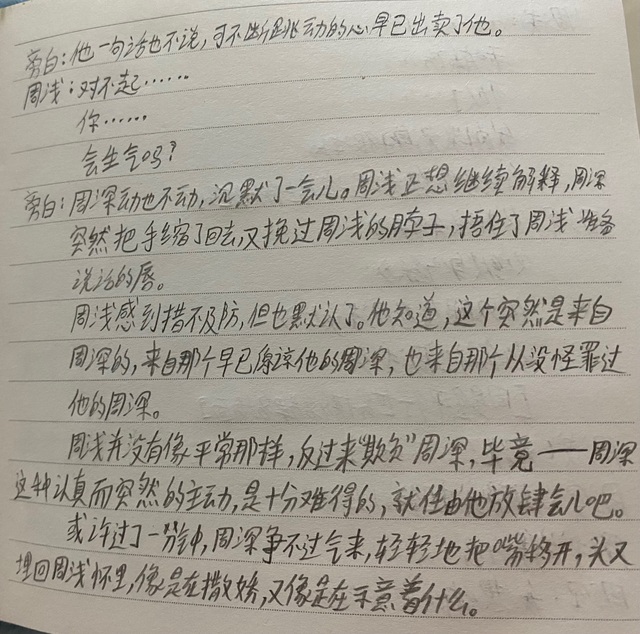 旁白:他一句话也不说,可不断跳动的心早已出卖了他。
周浅:对不起……
你……
会生气吗?
旁白:周深动也不动,沉默了一会儿。周浅正想继续解释,周深
突然把手缩了回去,又挽过周浅的脖子,捂住了周浅准备
说话的唇。
周浅感到措不及防,但也默认了。他知道,这个突然是来自
周深的,来自那个早已原谅他的周深,也来自那个从没怪罪过
他的周深。
周浅并没有像平常那样,反过来“欺负”周深,毕竟——周深
这种认真而突然的主动,是十分难得的,就任由他放肆会儿吧。
或许过了一分钟,周深争不过气来,轻轻地把嘴移开,头又
埋回周浅怀里,像是在撒娇,又像是在示意着什么。